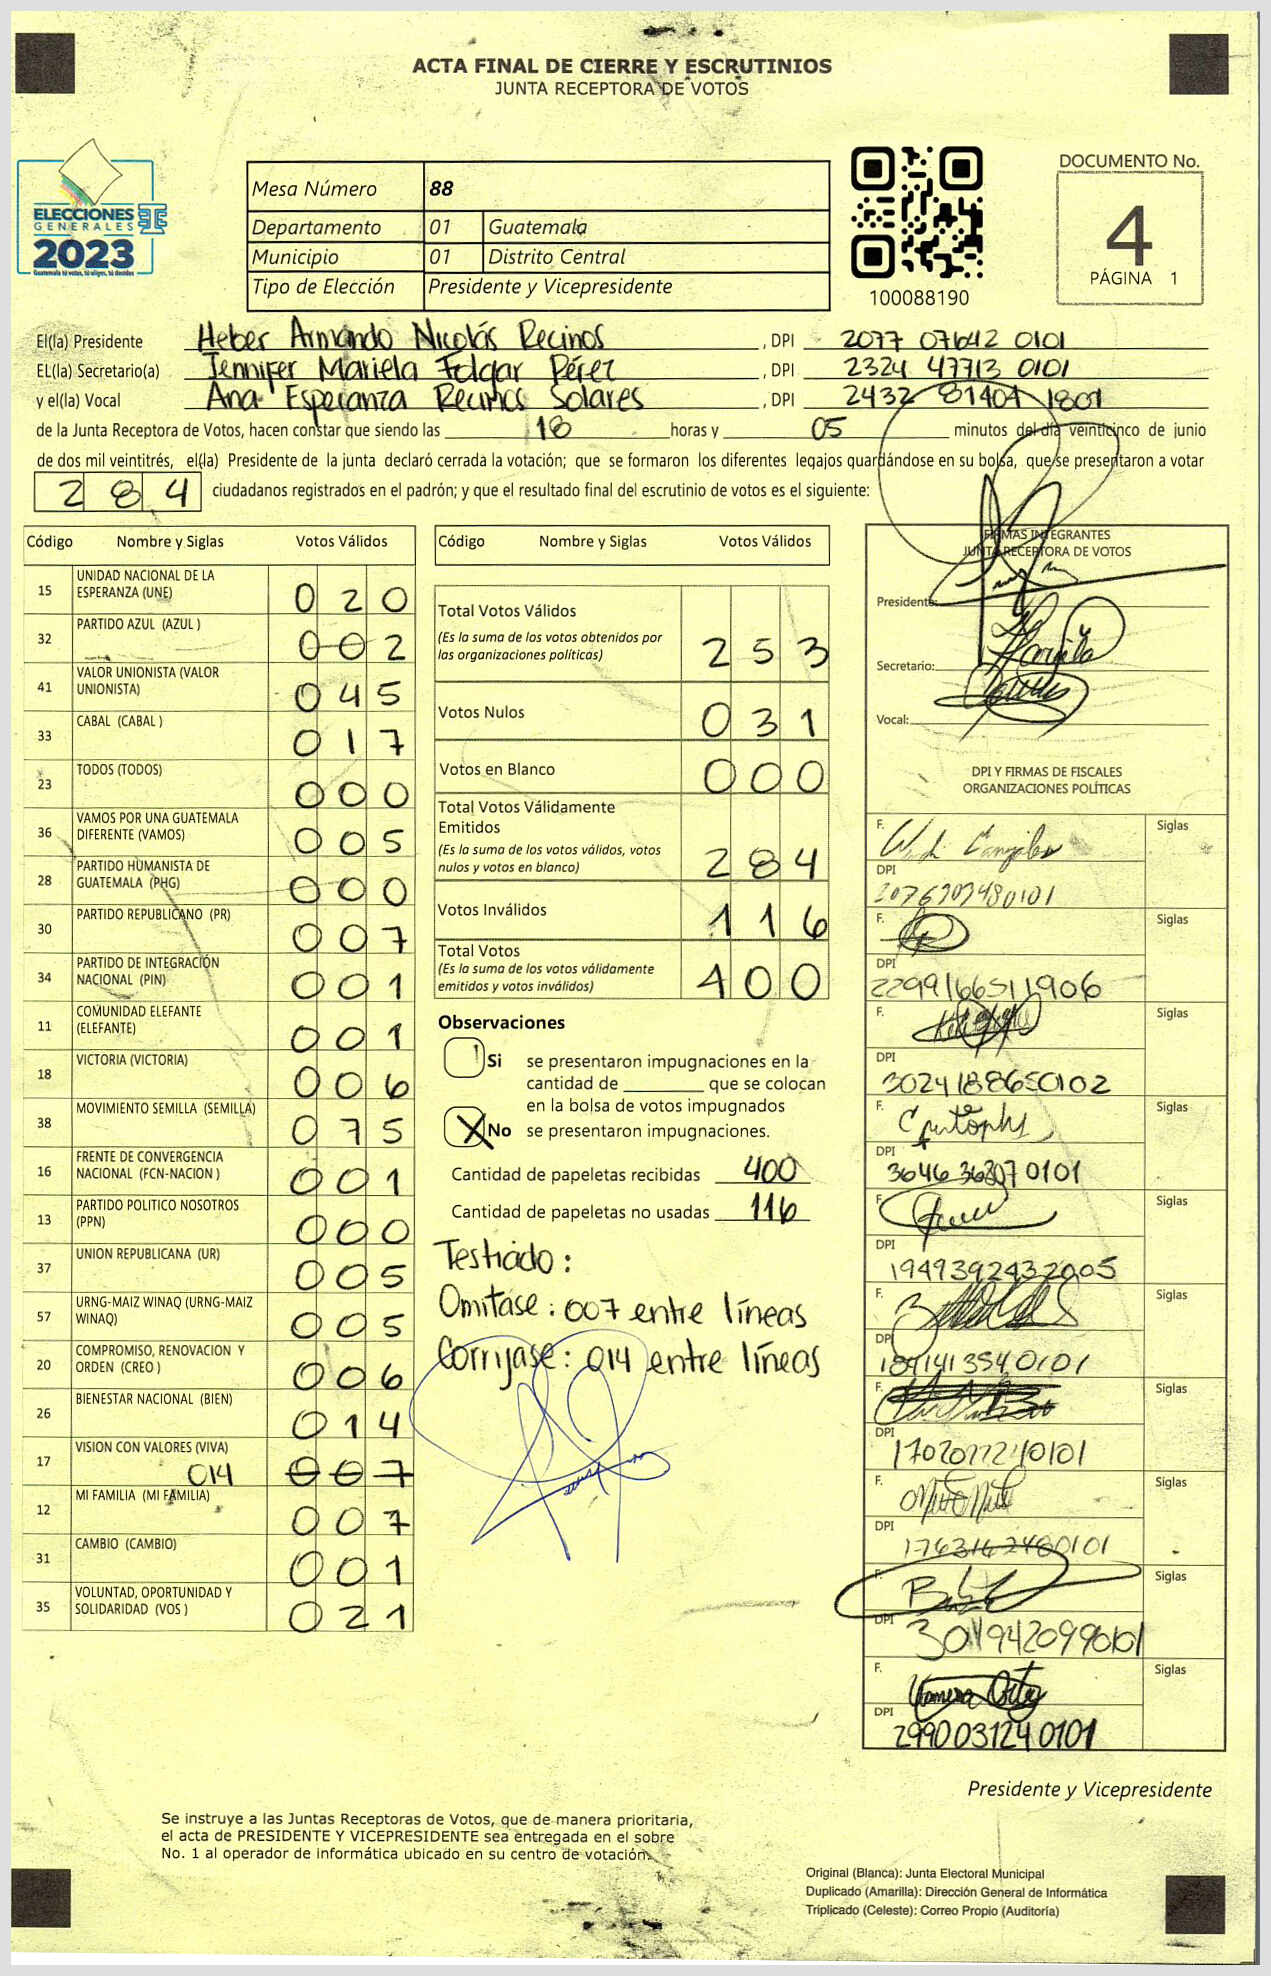 ACTA FINAL DE CIERRE Y ESCRUTINIOS
JUNTA RECEPTORA DE VOTOS
ELECCIONES
GENERALES
2023
Guatemala tú votas, tú eliges, tú decides
Mesa Número 88
Departamento 01 Guatemala
Municipio 01 Distrito Central
Tipo de Elección Presidente y Vicepresidente
100088190
DOCUMENTO No.
4
PÁGINA 1
El(la) Presidente Heber Armando Nicolás Recinos , DPI 2077 07642 0101
EL(la) Secretario(a) Jennifer Mariela Folgar Pérez , DPI 2324 47713 0101
y el(la) Vocal Ana Esperanza Recinos Solares , DPI 2432 81404 1801
de la Junta Receptora de Votos, hacen constar que siendo las 18 horas y 05 minutos del día veinticinco de junio
de dos mil veintitrés, el(la) Presidente de la junta declaró cerrada la votación; que se formaron los diferentes legajos guardándose en su bolsa, que se presentaron a votar
284 ciudadanos registrados en el padrón; y que el resultado final del escrutinio de votos es el siguiente:
Código Nombre y Siglas Votos Válidos
15 UNIDAD NACIONAL DE LA ESPERANZA (UNE) 020
32 PARTIDO AZUL (AZUL ) 002
41 VALOR UNIONISTA (VALOR UNIONISTA) 045
33 CABAL (CABAL ) 017
23 TODOS (TODOS) 000
36 VAMOS POR UNA GUATEMALA DIFERENTE (VAMOS) 005
28 PARTIDO HUMANISTA DE GUATEMALA (PHG) 000
30 PARTIDO REPUBLICANO (PR) 007
34 PARTIDO DE INTEGRACIÓN NACIONAL (PIN) 001
11 COMUNIDAD ELEFANTE (ELEFANTE) 001
18 VICTORIA (VICTORIA) 006
38 MOVIMIENTO SEMILLA (SEMILLA) 075
16 FRENTE DE CONVERGENCIA NACIONAL (FCN-NACION ) 001
13 PARTIDO POLITICO NOSOTROS (PPN) 000
37 UNION REPUBLICANA (UR) 005
57 URNG-MAIZ WINAQ (URNG-MAIZ WINAQ) 005
20 COMPROMISO, RENOVACION Y ORDEN (CREO ) 006
26 BIENESTAR NACIONAL (BIEN) 014
17 VISION CON VALORES (VIVA) 014 007
12 MI FAMILIA (MI FAMILIA) 007
31 CAMBIO (CAMBIO) 001
35 VOLUNTAD, OPORTUNIDAD Y SOLIDARIDAD (VOS ) 021
Código Nombre y Siglas Votos Válidos
Total Votos Válidos 253
(Es la suma de los votos obtenidos por
las organizaciones políticas)
Votos Nulos 031
Votos en Blanco 000
Total Votos Válidamente
Emitidos 284
(Es la suma de los votos válidos, votos
nulos y votos en blanco)
Votos Inválidos 116
Total Votos 400
(Es la suma de los votos válidamente
emitidos y votos inválidos)
Observaciones
Si se presentaron impugnaciones en la
cantidad de ________ que se colocan
en la bolsa de votos impugnados
X No se presentaron impugnaciones.
Cantidad de papeletas recibidas 400
Cantidad de papeletas no usadas 116
Testado:
Omitase: 007 entre líneas
Corrijase: 014 entre líneas
FIRMAS INTEGRANTES
JUNTA RECEPTORA DE VOTOS
Presidente:
Secretario:
Vocal:
DPI Y FIRMAS DE FISCALES
ORGANIZACIONES POLÍTICAS
F. Siglas
DPI
F. Siglas
DPI 2299166511906
F. Siglas
DPI 3024188650102
F. Siglas
DPI
F. Siglas
DPI 1949392432005
F. Siglas
DPI
F. Siglas
DPI
F. Siglas
DPI
F. Siglas
DPI
F. Siglas
DPI 2990031240101
Presidente y Vicepresidente
Se instruye a las Juntas Receptoras de Votos, que de manera prioritaria,
el acta de PRESIDENTE Y VICEPRESIDENTE sea entregada en el sobre
No. 1 al operador de informática ubicado en su centro de votación.
Original (Blanca): Junta Electoral Municipal
Duplicado (Amarilla): Dirección General de Informática
Triplicado (Celeste): Correo Propio (Auditoría)